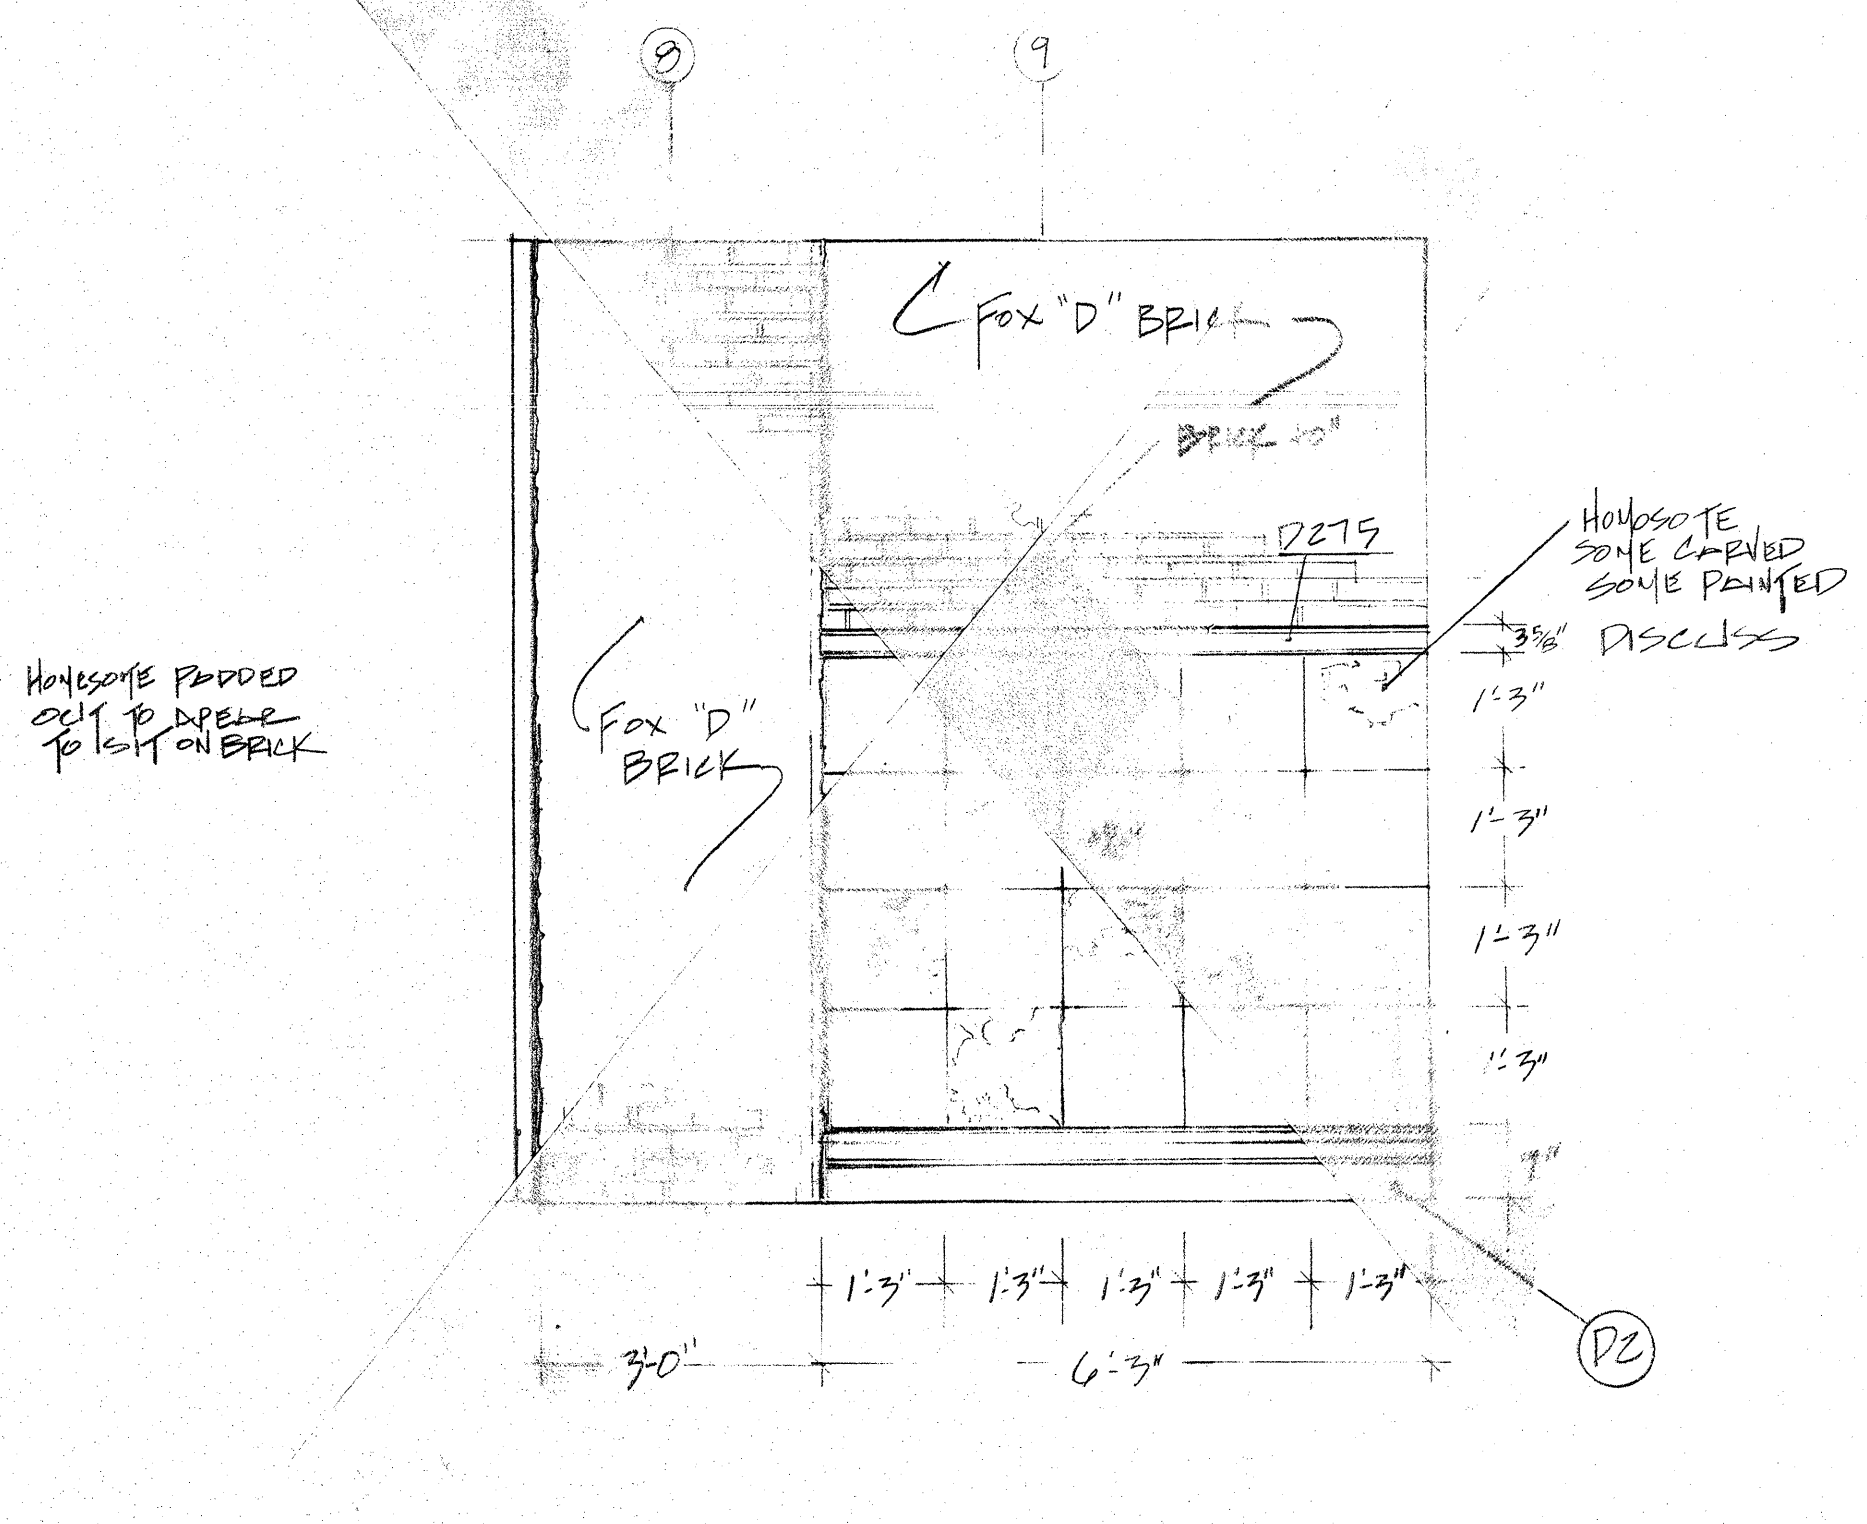 8
9
FOX "D" BRICK
BRICK
D275
HOMOSOTE
SOME CARVED
SOME PAINTED
DISCUSS
3 5/8"
HOMESOTE PADDED
OUT TO APEAR
TO SIT ON BRICK
FOX "D"
BRICK
1'-3"
1'-3"
1'-3"
1'-3"
1'-3" 1'-3" 1'-3" 1'-3" 1'-3"
3'-0" 6'-3"
D2